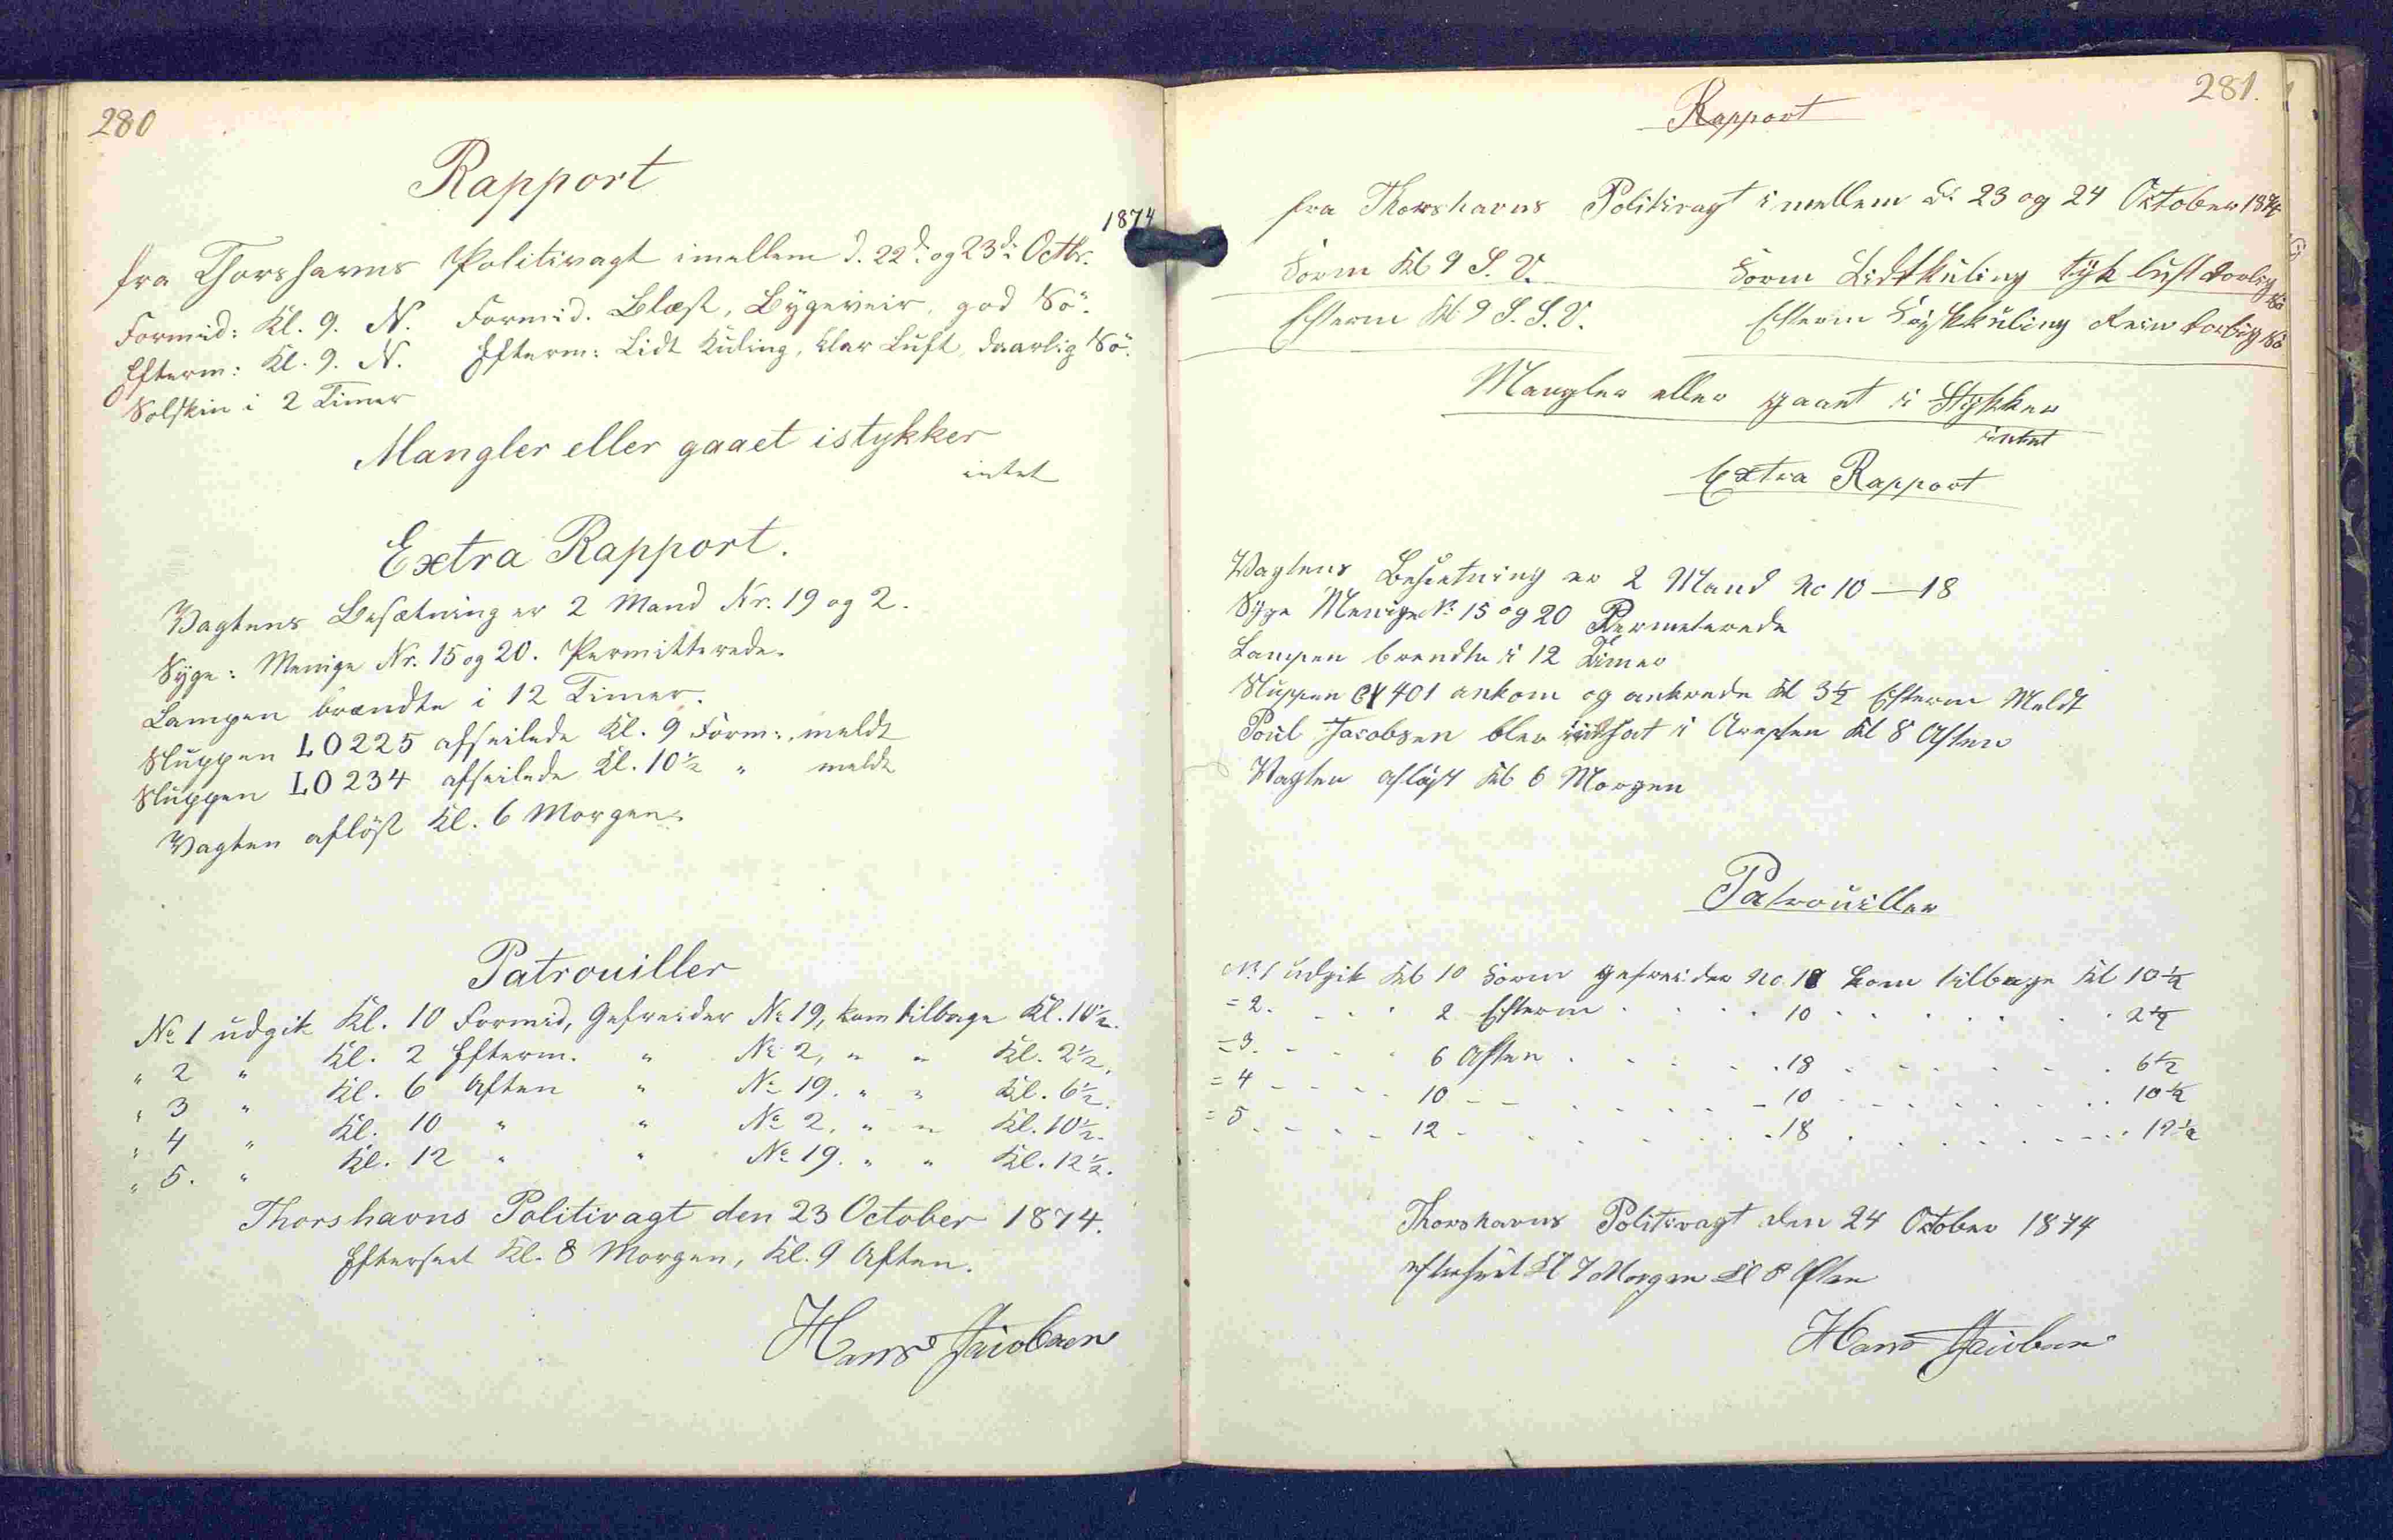 280
Rapport
1874
fra Thorshavns Politivagt imellem d. 22d: og 23d: Octbr.
Formid: Kl. 9. N. Formid. Blæst, Bygeveir, god Sö.
Efterm: Kl. 9. N. Efterm: Lidt Kuling, klar Luft, daarlig Sö.
Solskin i 2 Timer
Mangler eller gaaet istykker
intet
Extra Rapport.
Vagtens Besætning er 2 Mand Nr. 19 og 2.
Syge: Menige Nr. 15 og 20. Permitterede.
Lampen brændte i 12 Timer.
Sluppen LO225 afseilede Kl. 9 Form:, meldt
Sluppen LO234 afseilede Kl. 10½ " meldt
Vagten aflöst Kl. 6 Morgen.
Patrouiller
No 1 udgik Kl. 10 Formid, Gefreider No 19, kom tilbage Kl. 10½.
" 2 " Kl. 2 Efterm. " No 2, " " Kl. 2½.
" 3 " Kl. 6 Aften " No 19. " " Kl. 6½.
" 4 " Kl. 10 " " No 2, " " Kl. 10½.
" 5. " Kl. 12 " " No 19. " " Kl. 12½.
Thorshavns Politivagt den 23 October 1874.
Efterseet Kl. 8 Morgen, Kl. 9 Aften.
Hans Jacobsen
281.
Rapport
fra Thorshavns Politivagt imellem d: 23 og 24 October 1874
Form Kl 9 S. V. Form Lidtkuling tyk luft dorlig Sö
Efterm Kl 9 S. S. V. Efterm Kuling Rein dorlig Sö
Mangler eller gaaet i Stykker
intet
Extra Rapport
Vagtens Besætning er 2 Mand No 10 — 18
Syge Menige No 15 og 20 Permeterede
Lampen brendte i 12 Timer
Sluppen 401 ankom og ankrede Kl 3½ Efterm Meldt
Poul Jacobsen blev indsat i Aresten Kl 8 Aften
Vagten aflöst Kl 6 Morgen
Patrouiller
No 1 udgik Kl 10 Form gefreider No 18 kom tilbage Kl 10½
= 2. . . . 2 Efterm . . . . 10 . . . . . . 2½
= 3. - . . 6 Aften . . . . . 18 . . . . . . 6½
= 4 - - . . 10 - - . . . . - 10 . . . . . . 10½
= 5. . - . - 12 - . . . . . 18 . . . . . . 12½
Thorshavns Politivagt den 24 October 1874
efterseet Kl 7 Morgen Kl 8 Aften
Hans Jacobsen